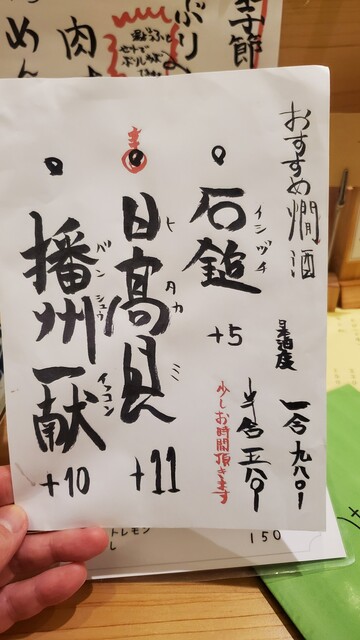 おすすめ燗酒
一合 九八〇
半合 五八〇
日本酒度
少しお時間頂きます
石鎚
イシヅチ
+5
日高見
ヒタカミ
+11
播州一献
バンシュウイッコン
+10
季節
ぶり
肉
めん
トレモン
150